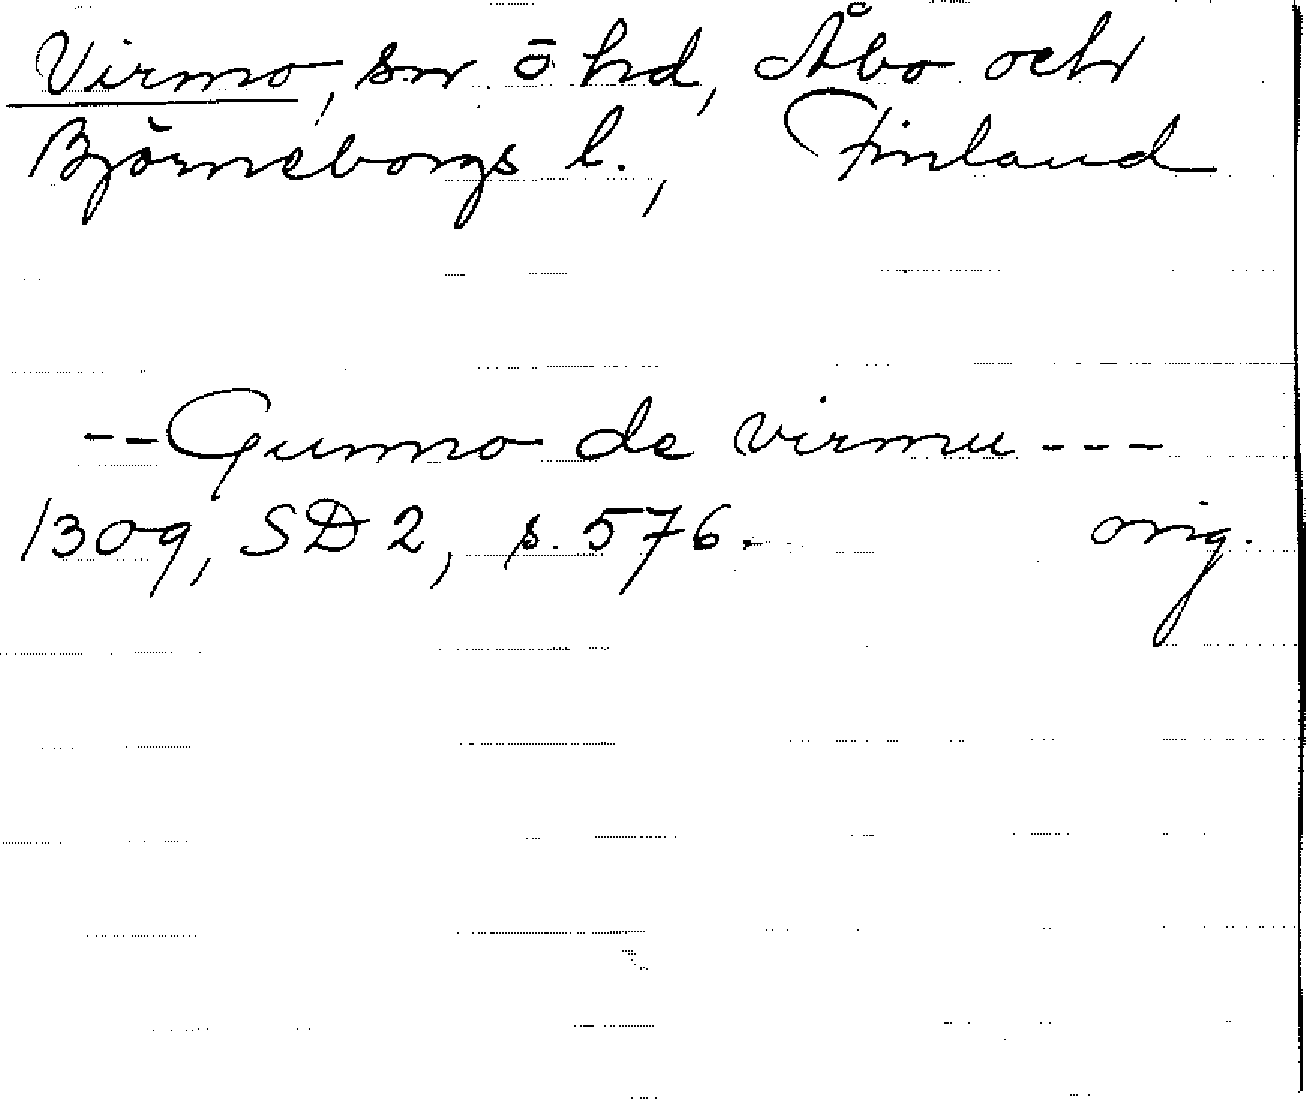 Virmo, sn o hd, Åbo och
Björneborgs l., Finland
--Gunno de virmu---
1309, SD 2, s. 576. orig.